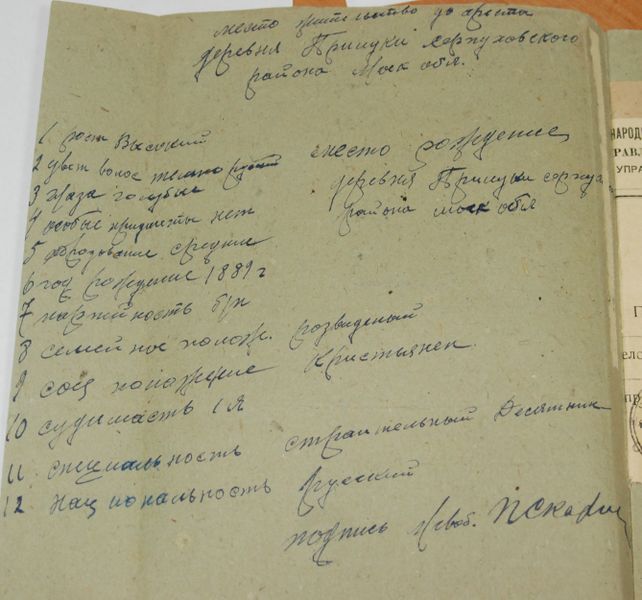 место жительство до ареста
деревня Прилуки серпуховского
района Моск обл.
1 рост Высокий
2 цвет волос темно русый
3 глаза голубые
4 особые приметы нет
5 образование средние
6 год рождение 1889 г
7 партийность б/п
8 семейное полож. розведеный
9 соц положение Кристьянен
10 судимасть 1я
11 специальность страительный Десятник
12 национальность Русский
место рождение
деревня Прилуки серпухо
района моск обл
подпись освоб.
НАРОД
РАВЛ
УПРА